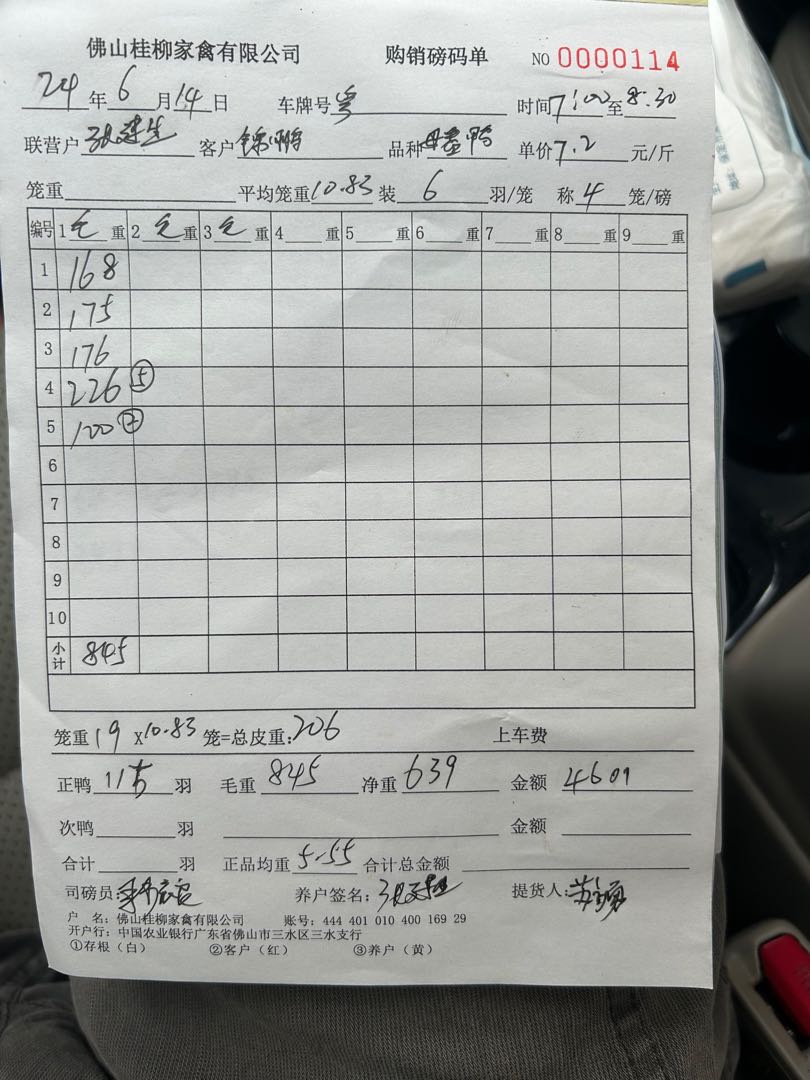 佛山桂柳家禽有限公司 购销磅码单 NO 0000114
24 年 6 月 14 日 车牌号 粤 时间 7:00 至 8:30
联营户 客户 锦鹏 品种 单价 7.2 元/斤
笼重 平均笼重 10.83 装 6 羽/笼 称 4 笼/磅
编号 1 毛 重 2 毛 重 3 毛 重 4 重 5 重 6 重 7 重 8 重 9 重
1 168
2 175
3 176
4 226 ⑤
5 100
6
7
8
9
10
小计 845
笼重 19 X 10.83 笼=总皮重: 206 上车费
正鸭 115 羽 毛重 845 净重 639 金额 4601
次鸭 羽 金额
合计 羽 正品均重 5.55 合计总金额
司磅员: 养户签名: 提货人:
户 名: 佛山桂柳家禽有限公司 账号: 444 401 010 400 169 29
开户行: 中国农业银行广东省佛山市三水区三水支行
①存根（白） ②客户（红） ③养户（黄）